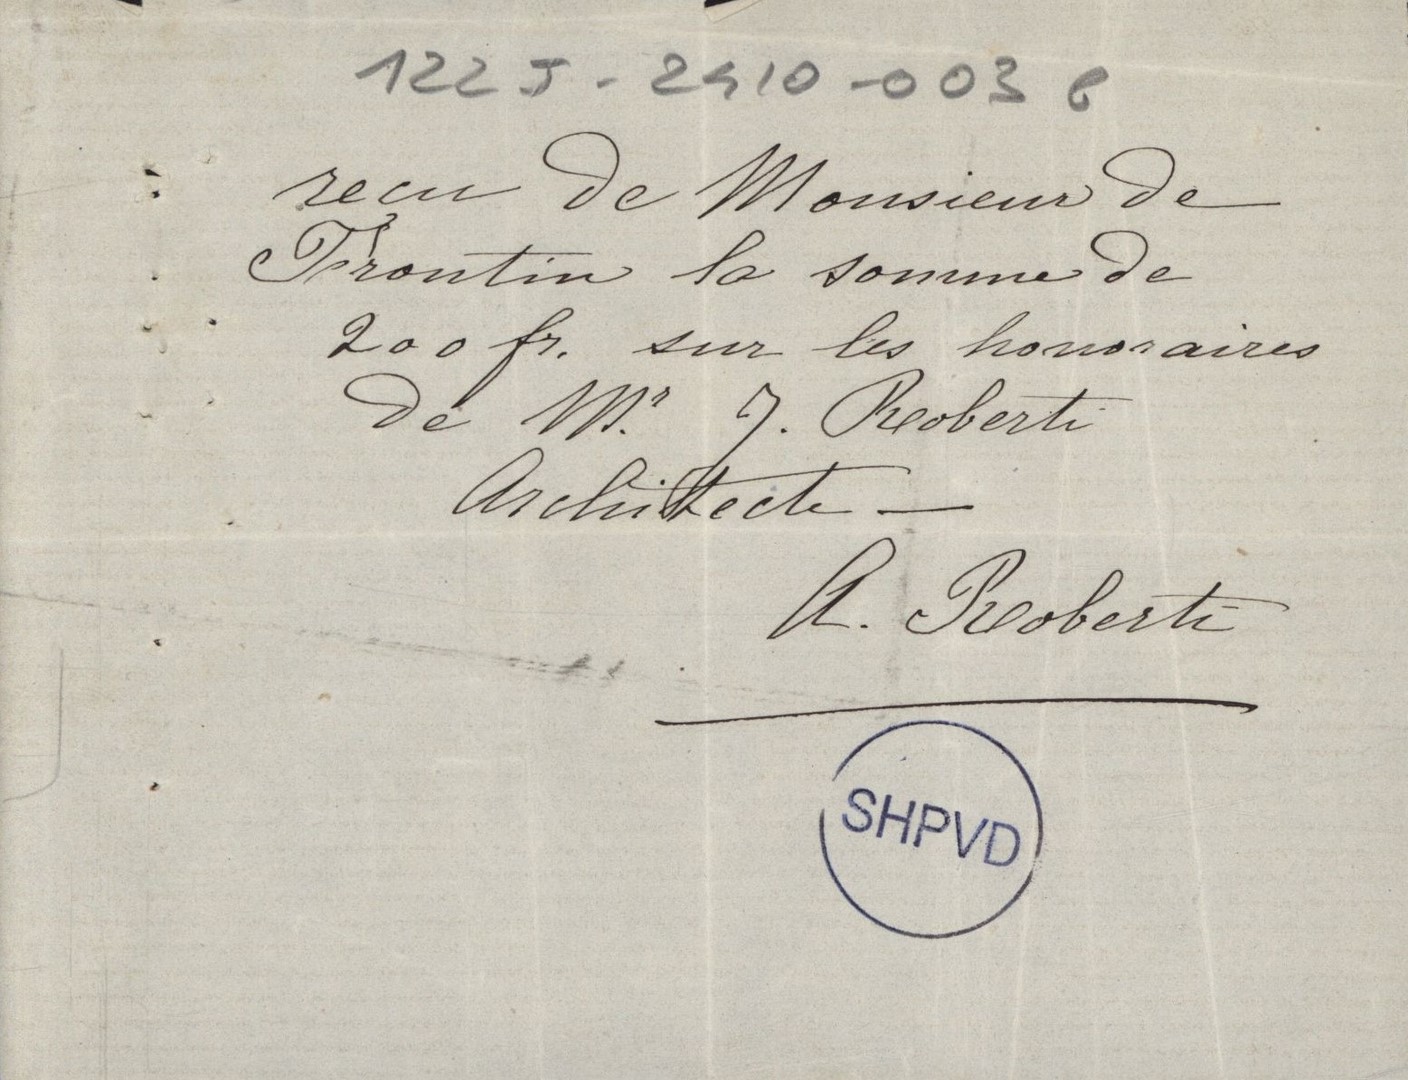 122 J - 2410 - 003 6
recu de Monsieur de
Frontin la somme de
200 fr. sur les honoraires
de Mr. J. Roberti
Architecte —
A. Roberti
SHPVD